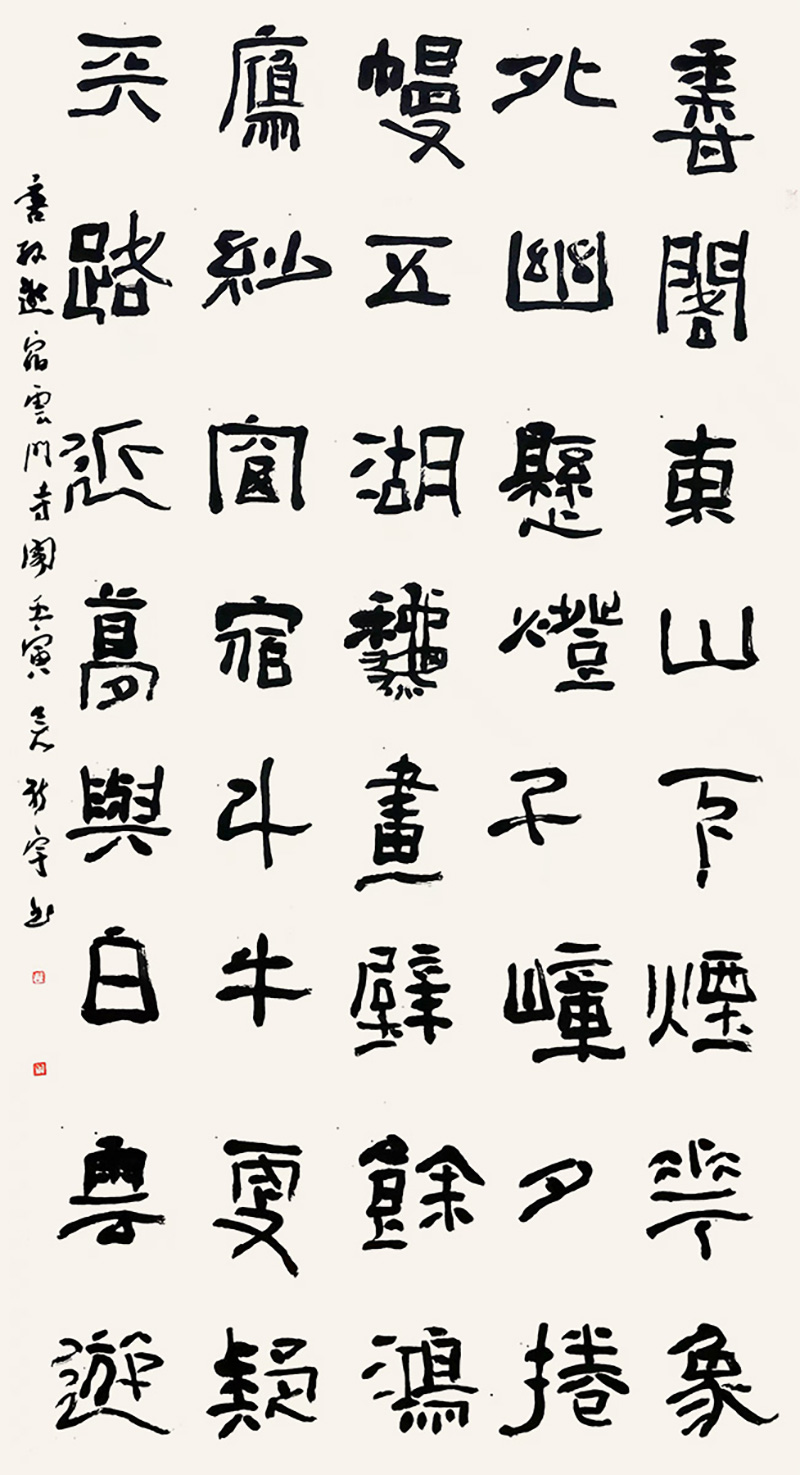 香閣東山下煙花象
外幽懸燈千嶂夕捲
幔五湖龝畫壁餘鴻
鴈紗窗宿斗牛更疑
天路近夢與白雲遊
唐孫逖宿雲門寺閣壬寅新宇书